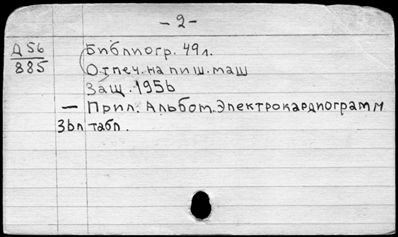 - 2 -
Д 56
885
Библиогр. 49 л.
Отпеч. на пиш. маш
Защ. 1956
— Прил. Альбом. Электрокардиограмм
36л табл.